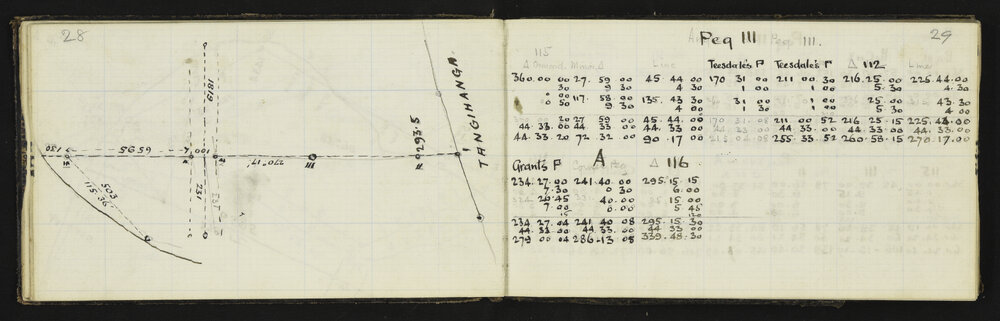 28
1819
1030
5659
100
270° 17'
III
293.5
TANGIHANGA.
503
115.36
251
29
Peg III
115
Δ Ormond Line
Teesdale's P Teesdale's P Δ 112 Line
360.00 00 27. 59 00 45 44 00 170 31 00 211 00 30 216.25.00 225.44.00
30 9 30 4 00 1 00 1 00 5.30 4 30
117. 58 00 135. 43 30 31 00 25.00 43.30
0 50 9 30 4 00 1 00 1 30 5.30 4 00
20 27 59 00 45. 44 00 170 31 08 211 00 52 216 25 15 225.44.00
44. 33. 00 44 33 00 44 33 00 44 33 00 44 33.00 44. 33 00 44. 33. 00
44. 33. 20 72. 32 00 90. 17 00 215 04 08 255. 33 52 260. 58. 15 270. 17. 00
Grant's P A Δ 116
234. 27. 00 241. 40. 00 295. 15. 15
7. 30 0 30 6. 00
26. 45 40. 00 15 00
7. 00 0. 00 5 45
234 27. 04 241 40 08 295. 15 30
44. 33. 00 44. 33. 00 44 33 00
279 00 04 286. 13 08 339. 48. 30